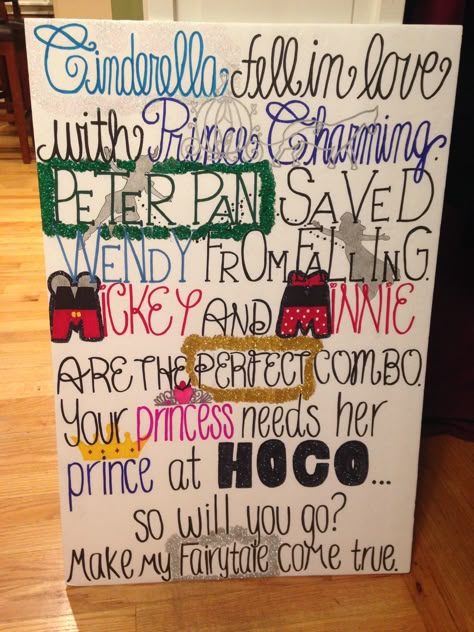 Cinderella fell in love
with Prince Charming.
PETER PAN SAVED
WENDY FROM FALLING.
MICKEY AND MINNIE
ARE THE PERFECT COMBO.
Your princess needs her
prince at HOCO...
so will you go?
Make my Fairytale come true.